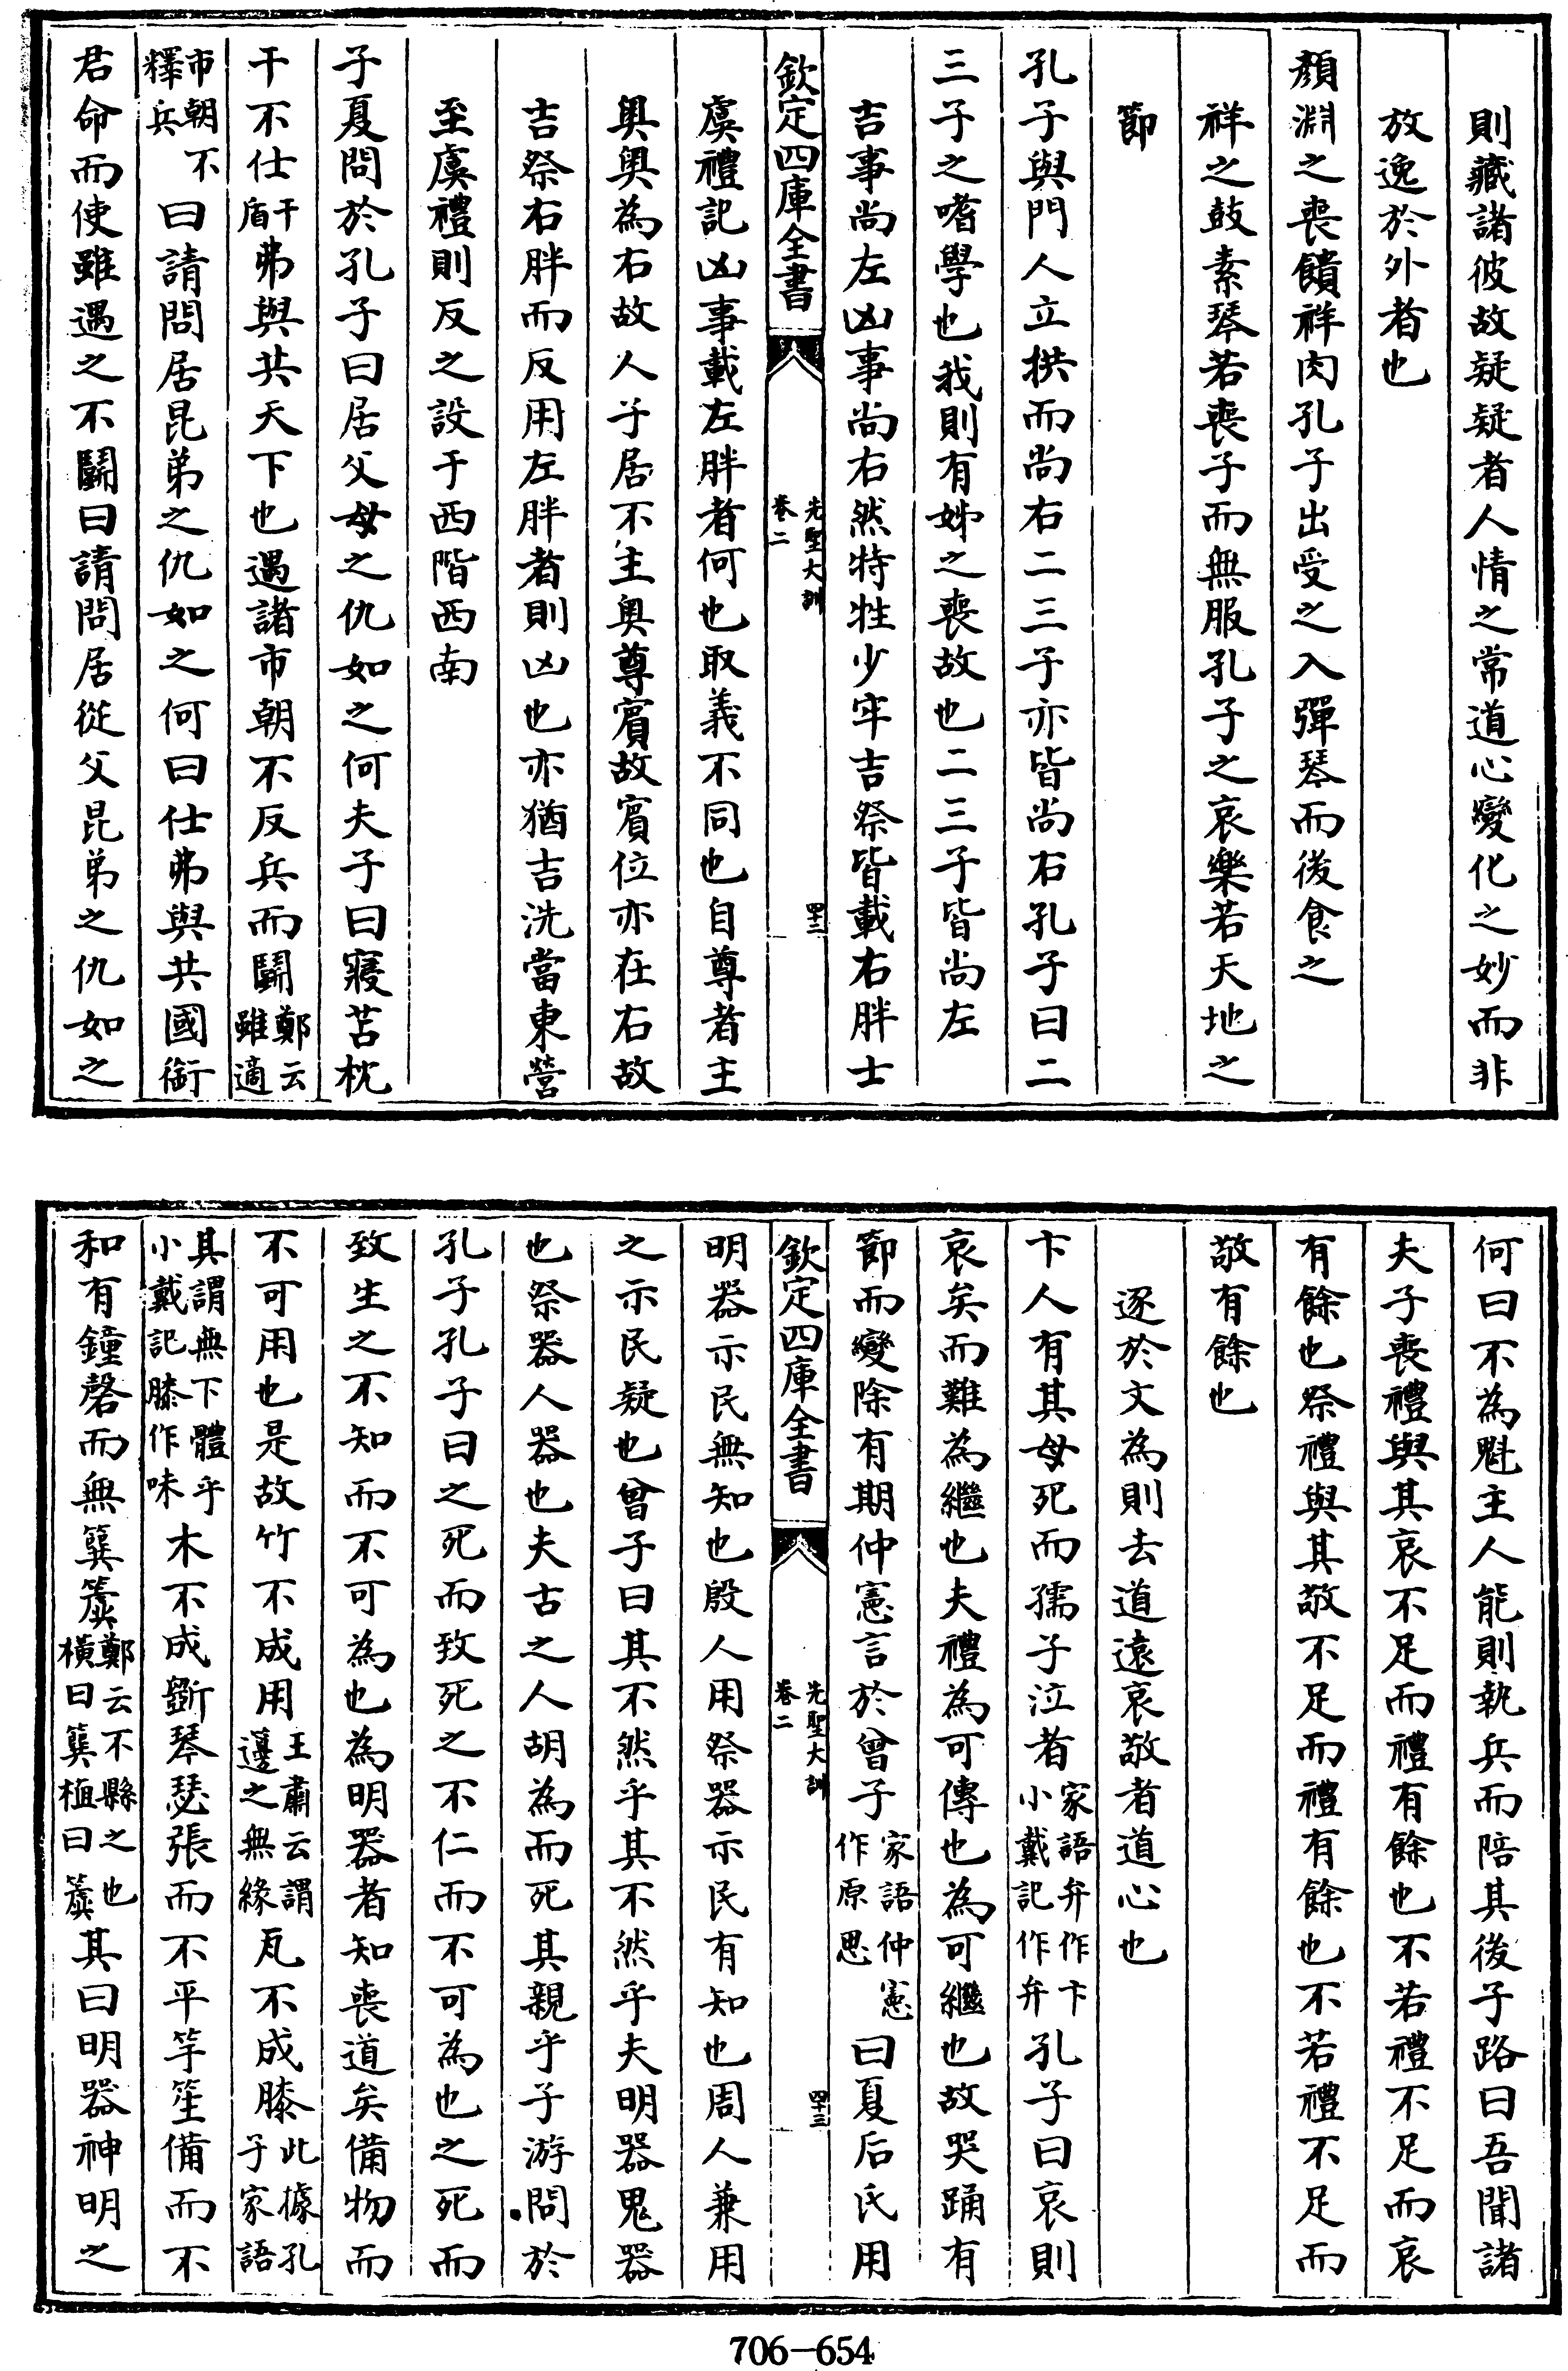 則藏諸彼故疑疑者人情之常道心變化之妙而非
放逸於外者也
顏淵之喪饋祥肉孔子出受之入彈琴而後食之
祥之鼓素琴若喪子而無服孔子之哀樂若天地之
節
孔子與門人立拱而尚右二三子亦皆尚右孔子曰二
三子之嗜學也我則有姊之喪故也二三子皆尚左
吉事尚左凶事尚右然特牲少牢吉祭皆載右胖士
欽定四庫全書
先聖大訓
卷二
四十三
虞禮記凶事載左胖者何也取義不同也自尊者主
奥奥為右故人子居不主奥尊賓故賓位亦在右故
吉祭右胖而反用左胖者則凶也亦猶吉洗當東營
至虞禮則反之設于西階西南
子夏問於孔子曰居父母之仇如之何夫子曰寢苫枕
干不仕干盾弗與共天下也遇諸市朝不反兵而鬭鄭云雖適
市朝不釋兵曰請問居昆弟之仇如之何曰仕弗與共國銜
君命而使雖遇之不鬭曰請問居從父昆弟之仇如之
何曰不為魁主人能則執兵而陪其後子路曰吾聞諸
夫子喪禮與其哀不足而禮有餘也不若禮不足而哀
有餘也祭禮與其敬不足而禮有餘也不若禮不足而
敬有餘也
逐於文為則去道遠哀敬者道心也
卞人有其母死而孺子泣者家語弁作卞小戴記作弁孔子曰哀則
哀矣而難為繼也夫禮為可傳也為可繼也故哭踊有
節而變除有期仲憲言於曾子家語仲憲作原思曰夏后氏用
欽定四庫全書
先聖大訓
卷二
四十三
明器示民無知也殷人用祭器示民有知也周人兼用
之示民疑也曾子曰其不然乎其不然乎夫明器鬼器
也祭器人器也夫古之人胡為而死其親乎子游問於
孔子孔子曰之死而致死之不仁而不可為也之死而
致生之不知而不可為也為明器者知喪道矣備物而
不可用也是故竹不成用王肅云謂邊之無緣瓦不成膝此據孔子家語
其謂無下體乎小戴記膝作味木不成斲琴瑟張而不平竽笙備而不
和有鐘磬而無簨簴鄭云不縣之也橫曰簨植曰簴其曰明器神明之
706-654